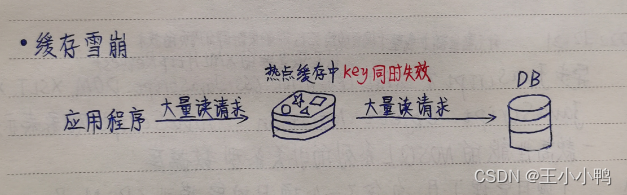 • 缓存雪崩
热点缓存中key同时失效
DB
应用程序 大量读请求 大量读请求
CSDN @王小小鸭